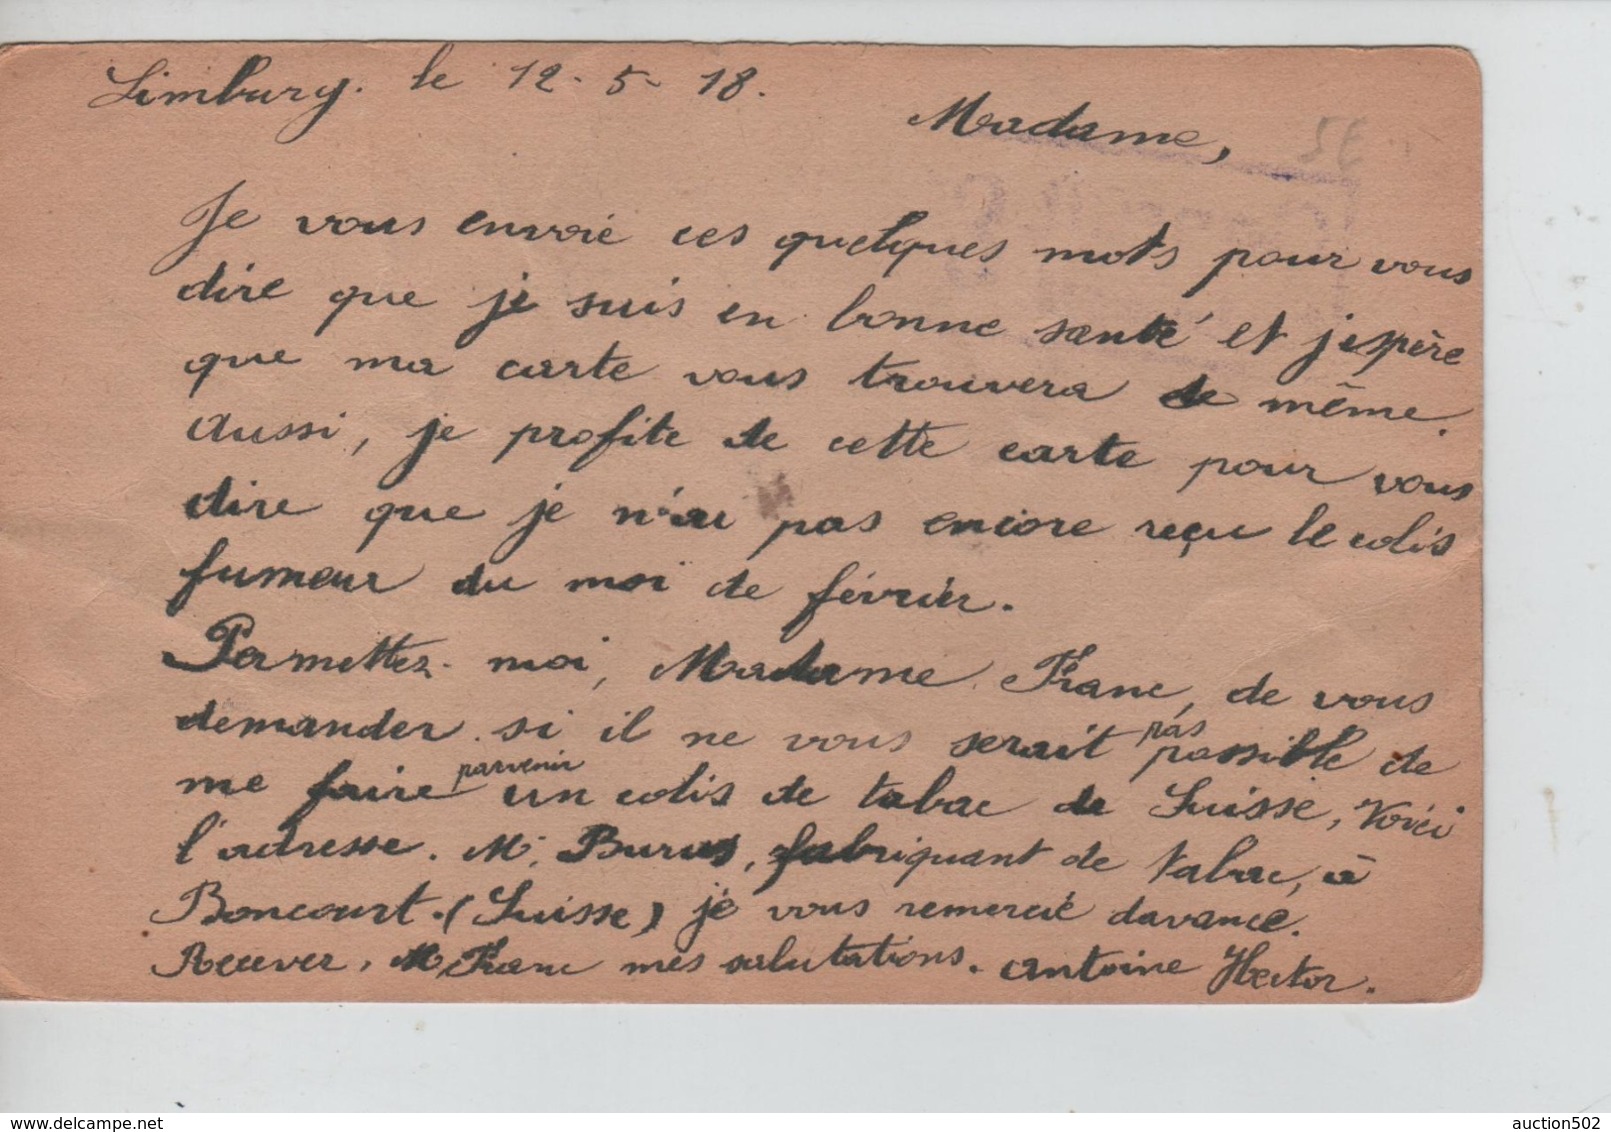 Limburg. le 12-5-18.
Madame,
Je vous envoie ces quelques mots pour vous
dire que je suis en bonne santé et j'espère
que ma carte vous trouvera de même.
Aussi, je profite de cette carte pour vous
dire que je n'ai pas encore reçu le colis
fumeur du moi de février.
Permettez-moi, Madame Franc, de vous
demander si il ne vous serait pas possible de
me faire parvenir un colis de tabac de Suisse, Voici
l'adresse. M. Burus, fabriquant de tabac, à
Boncourt. (Suisse) je vous remercié davance.
Recever, M, Franc mes salutations. Antoine Hector.
auction502